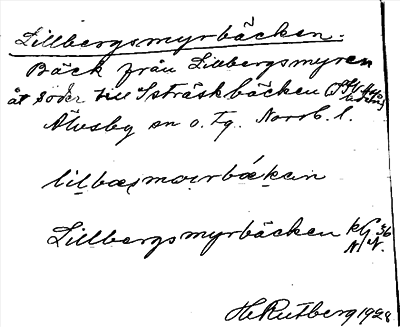 Lillbergsmyrbäcken.
Bäck från Lillbergsmyren
åt söder till Isträskbäcken
Älvsby sn o. tg. Norrb. l.
Lillbergsmyrbäcken kG 36
N.
H. Rutberg 1928